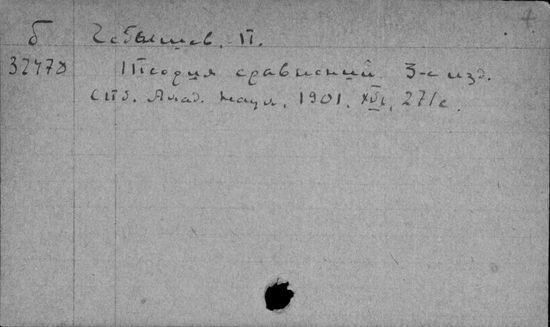 Б Чебышев, П.
32478 Теория сравнений 3-е изд.
СПб. Акад. наук, 1901. XVI, 271 с.